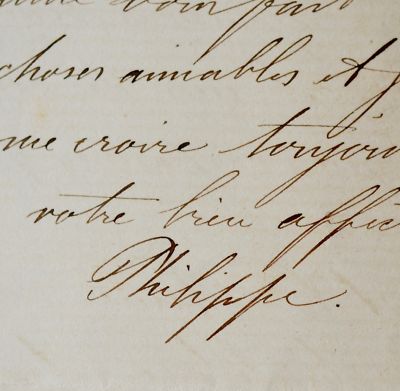 vous font
choses aimables et
me croire toujou
votre bien affec
Philippe.